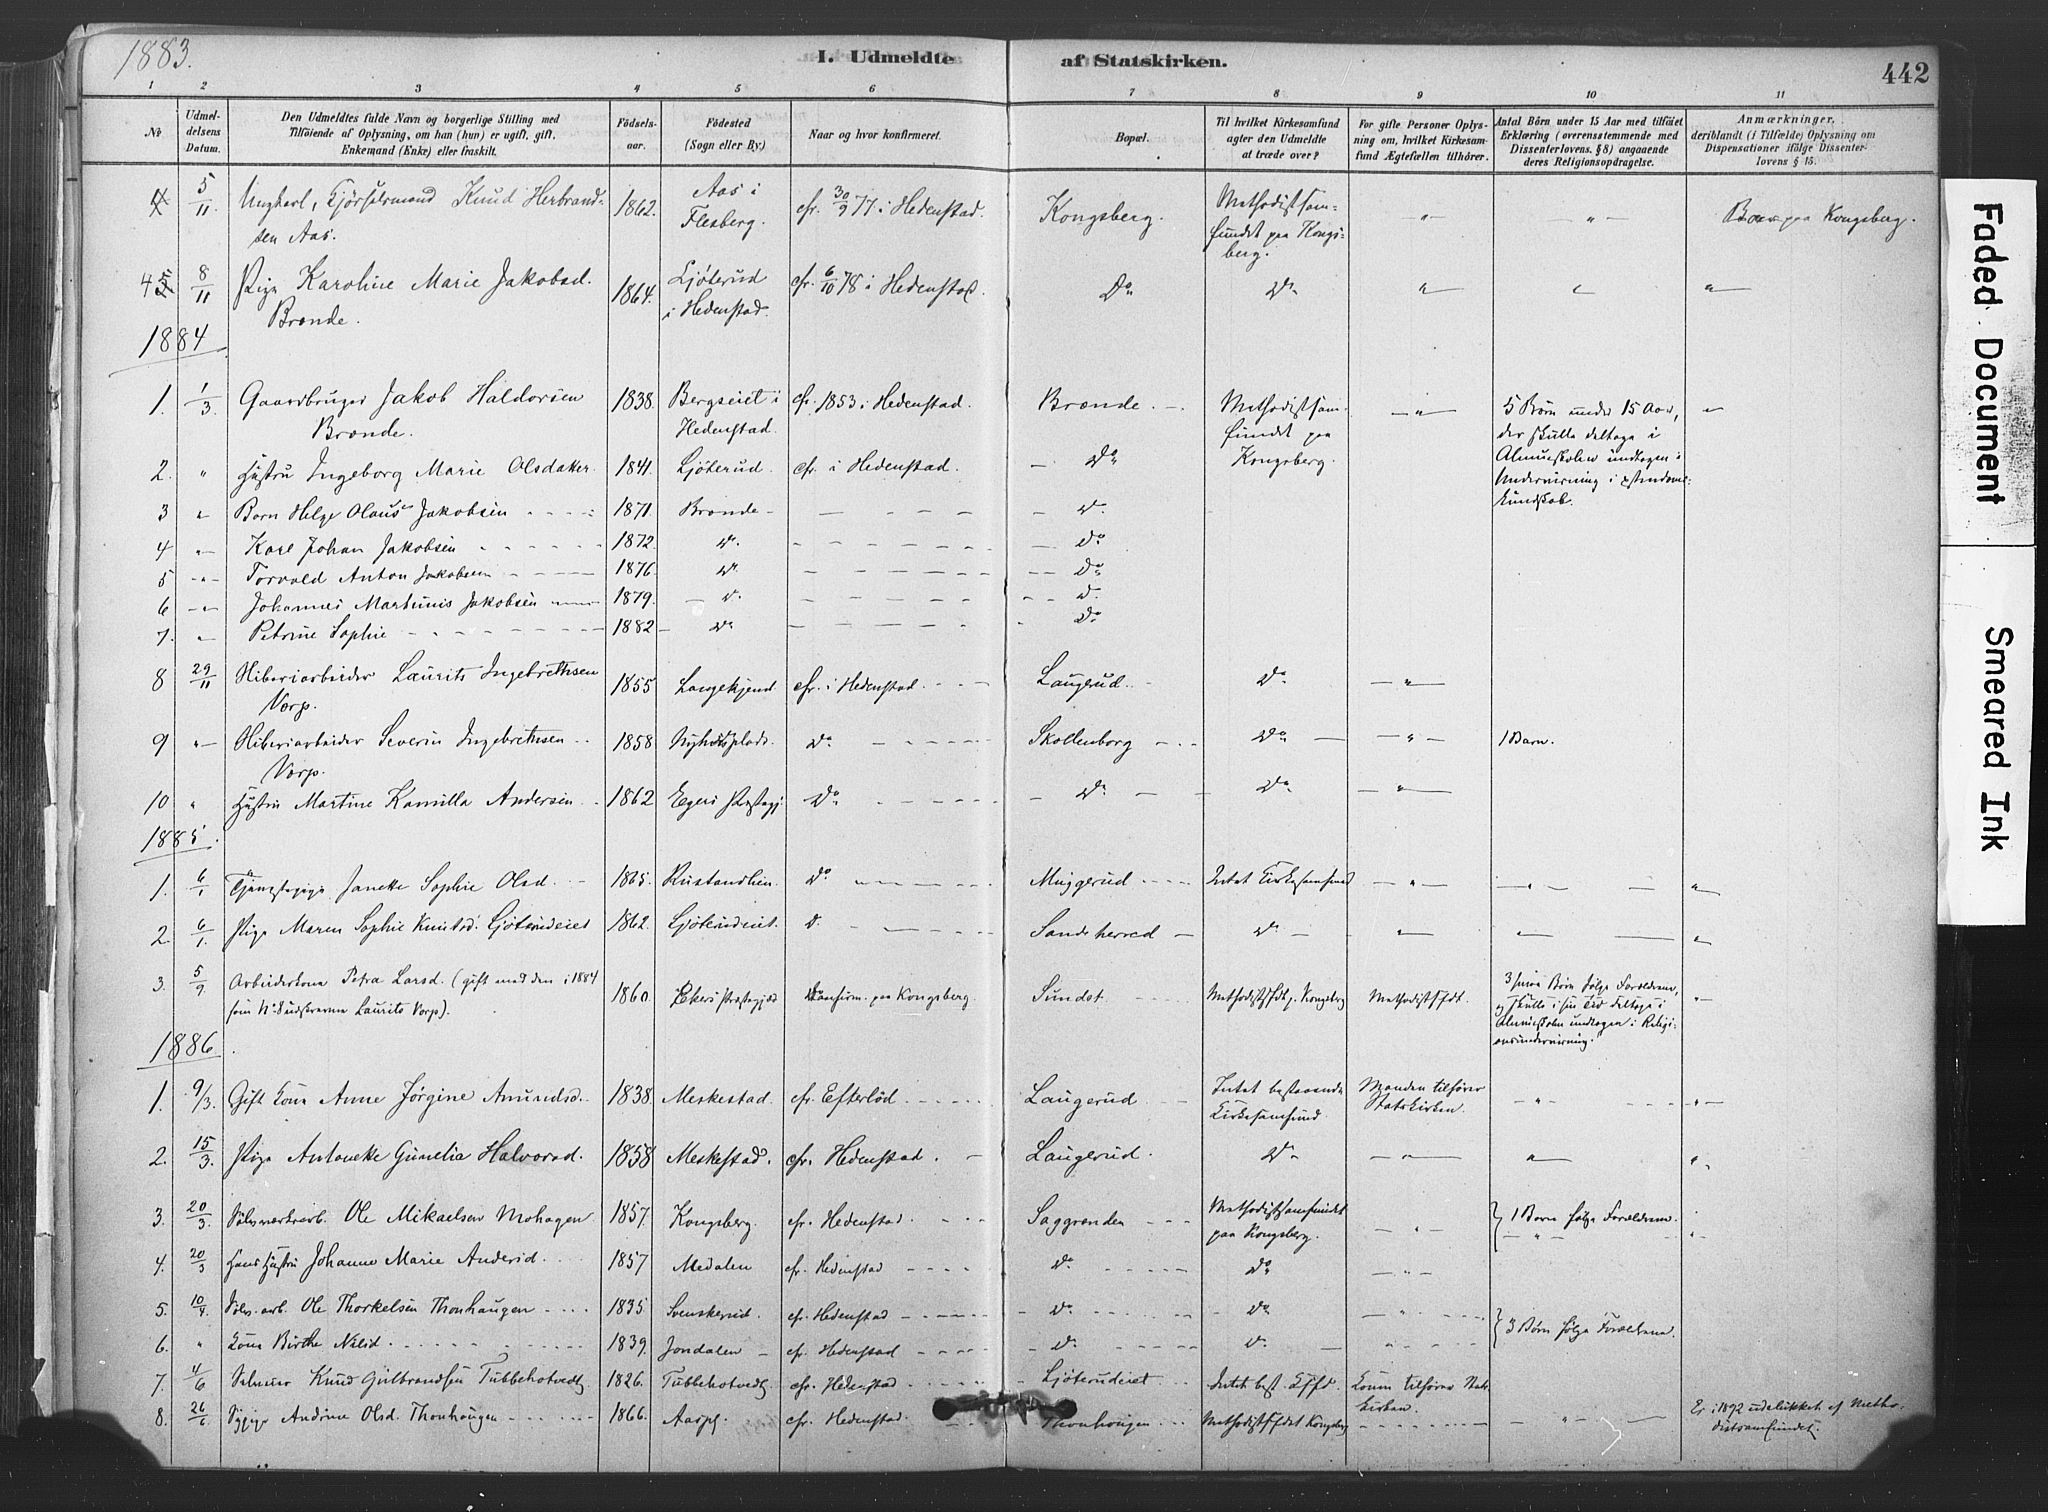 1883.
I. Udmeldte af Statskirken.
442
1 2 3 4 5 6 7 8 9 10 11
No
Udmel-
delsens
Datum.
Den Udmeldtes fulde Navn og borgerlige Stilling med
Tilføiende af Oplysning, om han (hun) er ugift, gift,
Enkemand (Enke) eller fraskilt.
Fødsels-
aar.
Fødested
(Sogn eller By.)
Naar og hvor konfirmeret.
Bopæl.
Til hvilket Kirkesamfund
agter den Udmeldte
at træde over?
For gifte Personer Oplys-
ning om, hvilket Kirkesam-
fund Ægtefællen tilhører.
Antal Børn under 15 Aar med tilføiet
Erklæring (overensstemmende med
Dissenterlovens. §8) angaaende
deres Religionsopdragelse.
Anmærkninger,
deriblandt (i Tilfælde) Oplysning om
Dispensationer ifølge Dissenter-
lovens § 15.
4 5/11. Ungkarl, Kjørselsmand Knud Herbrand- 1862. Aas i cfr. 30/9 77 i Hedenstad. Kongsberg. Methodistsam- " " Boer paa Kongsberg.
sen Aas. Flesberg. fundet paa Kongs-
berg.
5 8/11 Pige Karoline Marie Jakobsd. 1864. Ljøterud cfr. 6/10 78 i Hedenstad. Do Do " "
Brænde. i Hedenstad.
1884
1. 1/3 Gaardbruger Jakob Haldorsen 1838. Bergseiet i cfr. 1853 i Hedenstad. Brænde. Methodistsam- " 5 Børn under 15 Aar, "
Brænde. Hedenstad. fundet paa der skulle deltage i
2. " Hustru Ingeborg Marie Olsdatter. 1841. Ljøterud. cfr. i Hedenstad. Do Kongsberg. Almueskolen undtagen i
Undervisning i Kristendoms-
3 " Barn Helge Olaus Jakobsen 1871. Brænde D. kundskab.
4 " Karl Johan Jakobsen 1872. Do Do
5 " Torvald Anton Jakobsen 1876. Do Do
6 " Johannes Martinius Jakobsen 1879. D. D.
7. " Petrine Sophie 1882 Do Do
8 29/11 Sliberiarbeider Laurits Ingebrethsen 1855 Langekjend cfr. i Hedenstad. Laugerud. Do "
Vorp.
9 " Sliberiarbeider Severin Ingebrethsen 1858 Nyhusplads. Do Skollenborg Do " 1 Barn.
Vorp.
10 " Hustru Martine Kamilla Andersen 1862 Egers Præstegj. Do Do Do "
1885.
1. 6/1 Tjenestepige Janette Sophie Olsd. 1865. Rustandlien. Do Muggerud Intet Kirkesamfund " " "
2. 6/1. Pige Maren Sophie Knutsd. Ljøterudeiet 1862. Ljøterudeiet. D. Sandsherred Do " "
3. 5/9. Arbeiderkone Petra Larsd. (gift med den i 1884 1860. Ekers Præstegjæld Konfirm. paa Kongsberg. Sundet. Methodistsfdt. p. Kongsberg Methodistsfdt. 3 smaa Børn følge Forældrene, "
som No 8 udskrevne Laurits Vorp). og skulle i sin Tid deltage i
Almueskolen undtagen i Religi-
onsundervisning.
1886
1. 9/3. Gift Kone Anne Jørgine Amundsd. 1838. Meskestad. cfr. Efterlød Laugerud. Intet bestaaende Manden tilhører " "
Kirkesamfund. Statskirken.
2. 15/3. Pige Antonette Gunelia Halvorsd. 1858 Meskestad. cfr. Hedenstad. Laugerud. Do " " "
3. 20/3. Sølvværksarb. Ole Mikaelsen Mohagen 1857. Kongsberg. cfr. Hedenstad. Saggrenden Methodistsamfundet " 1 Barn følge Forældrene.
paa Kongsberg.
4. 20/3 Hans Hustru Johanne Marie Andersd. 1857 Medalen cfr. Hedenstad Do Do "
5. 10/4. Sølv. arb. Ole Thorkelsen Thonhaugen 1835 Svenskerud. cfr. Hedenstad Do Do "
6. " Kone Birthe Nilsd. 1839. Jondalen cfr. Hedenstad Do D. " 3 Børn følge Forældrene.
7. 4/6 Knud Gulbrandsen Tubbehotvedt 1826. Tubbehotvedt cfr. Hedenstad Ljøterudeiet Intet best. Konen tilhører Stats-
kirken.
8. 26/6 Andrine Olsd. Thonhaugen 1866. Aaspl. cfr. Hedenstad. Thonhaugen Methodistsfdet Kongsberg " Er i 1892 udelukket af Metho-
distsamfundet.
Faded Document
Smeared Ink